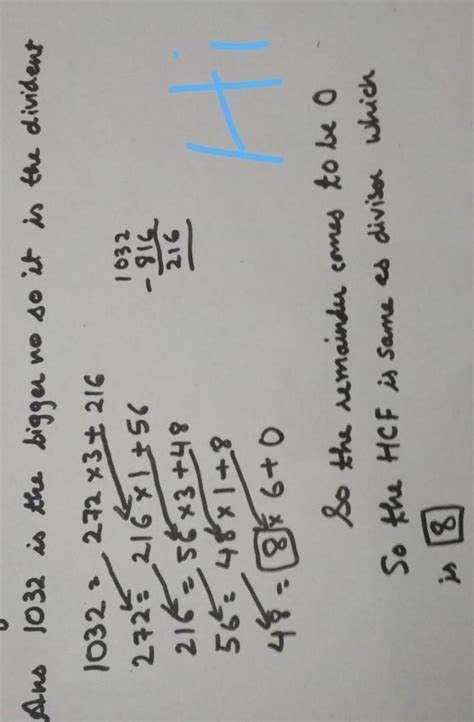 Ans 1032 is the bigger no so it is the divident
1032 = 272 × 3 + 216
272 = 216 × 1 + 56
216 = 56 × 3 + 48
56 = 48 × 1 + 8
48 = 8 × 6 + 0
1032
- 816
216
Hi
So the remainder comes to be 0
So the HCF is same as divisor which
is 8